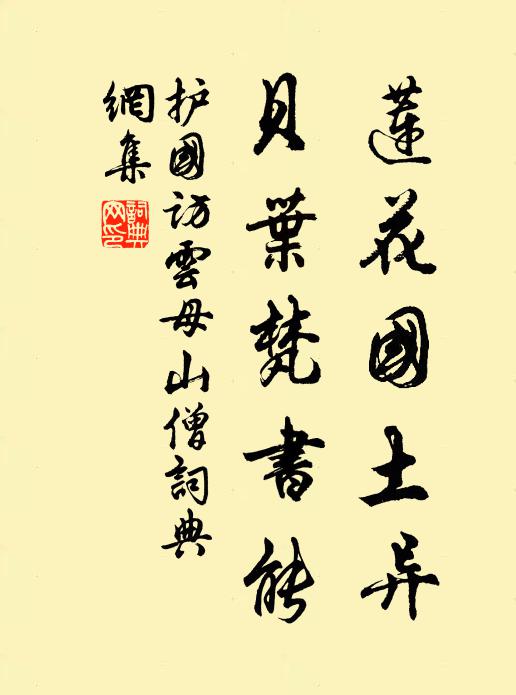 蓮花國土异
貝葉梵書能
护國訪雲母山僧詞典
網集
詞典
网印